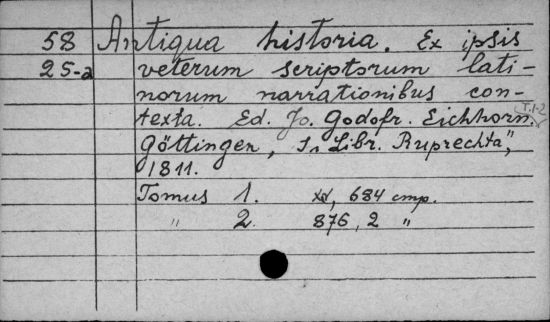 58 Antiqua historia. Ex ipsis
25-a veterum scriptorum lati-
norum narrationibus con-
texta. Ed. Jo. Godofr. Eichhorn. T. 1-2
Göttingen, „Libr. Ruprechta",
1811.
Tomus 1. XV, 684 стр.
" 2. 876, 2 "